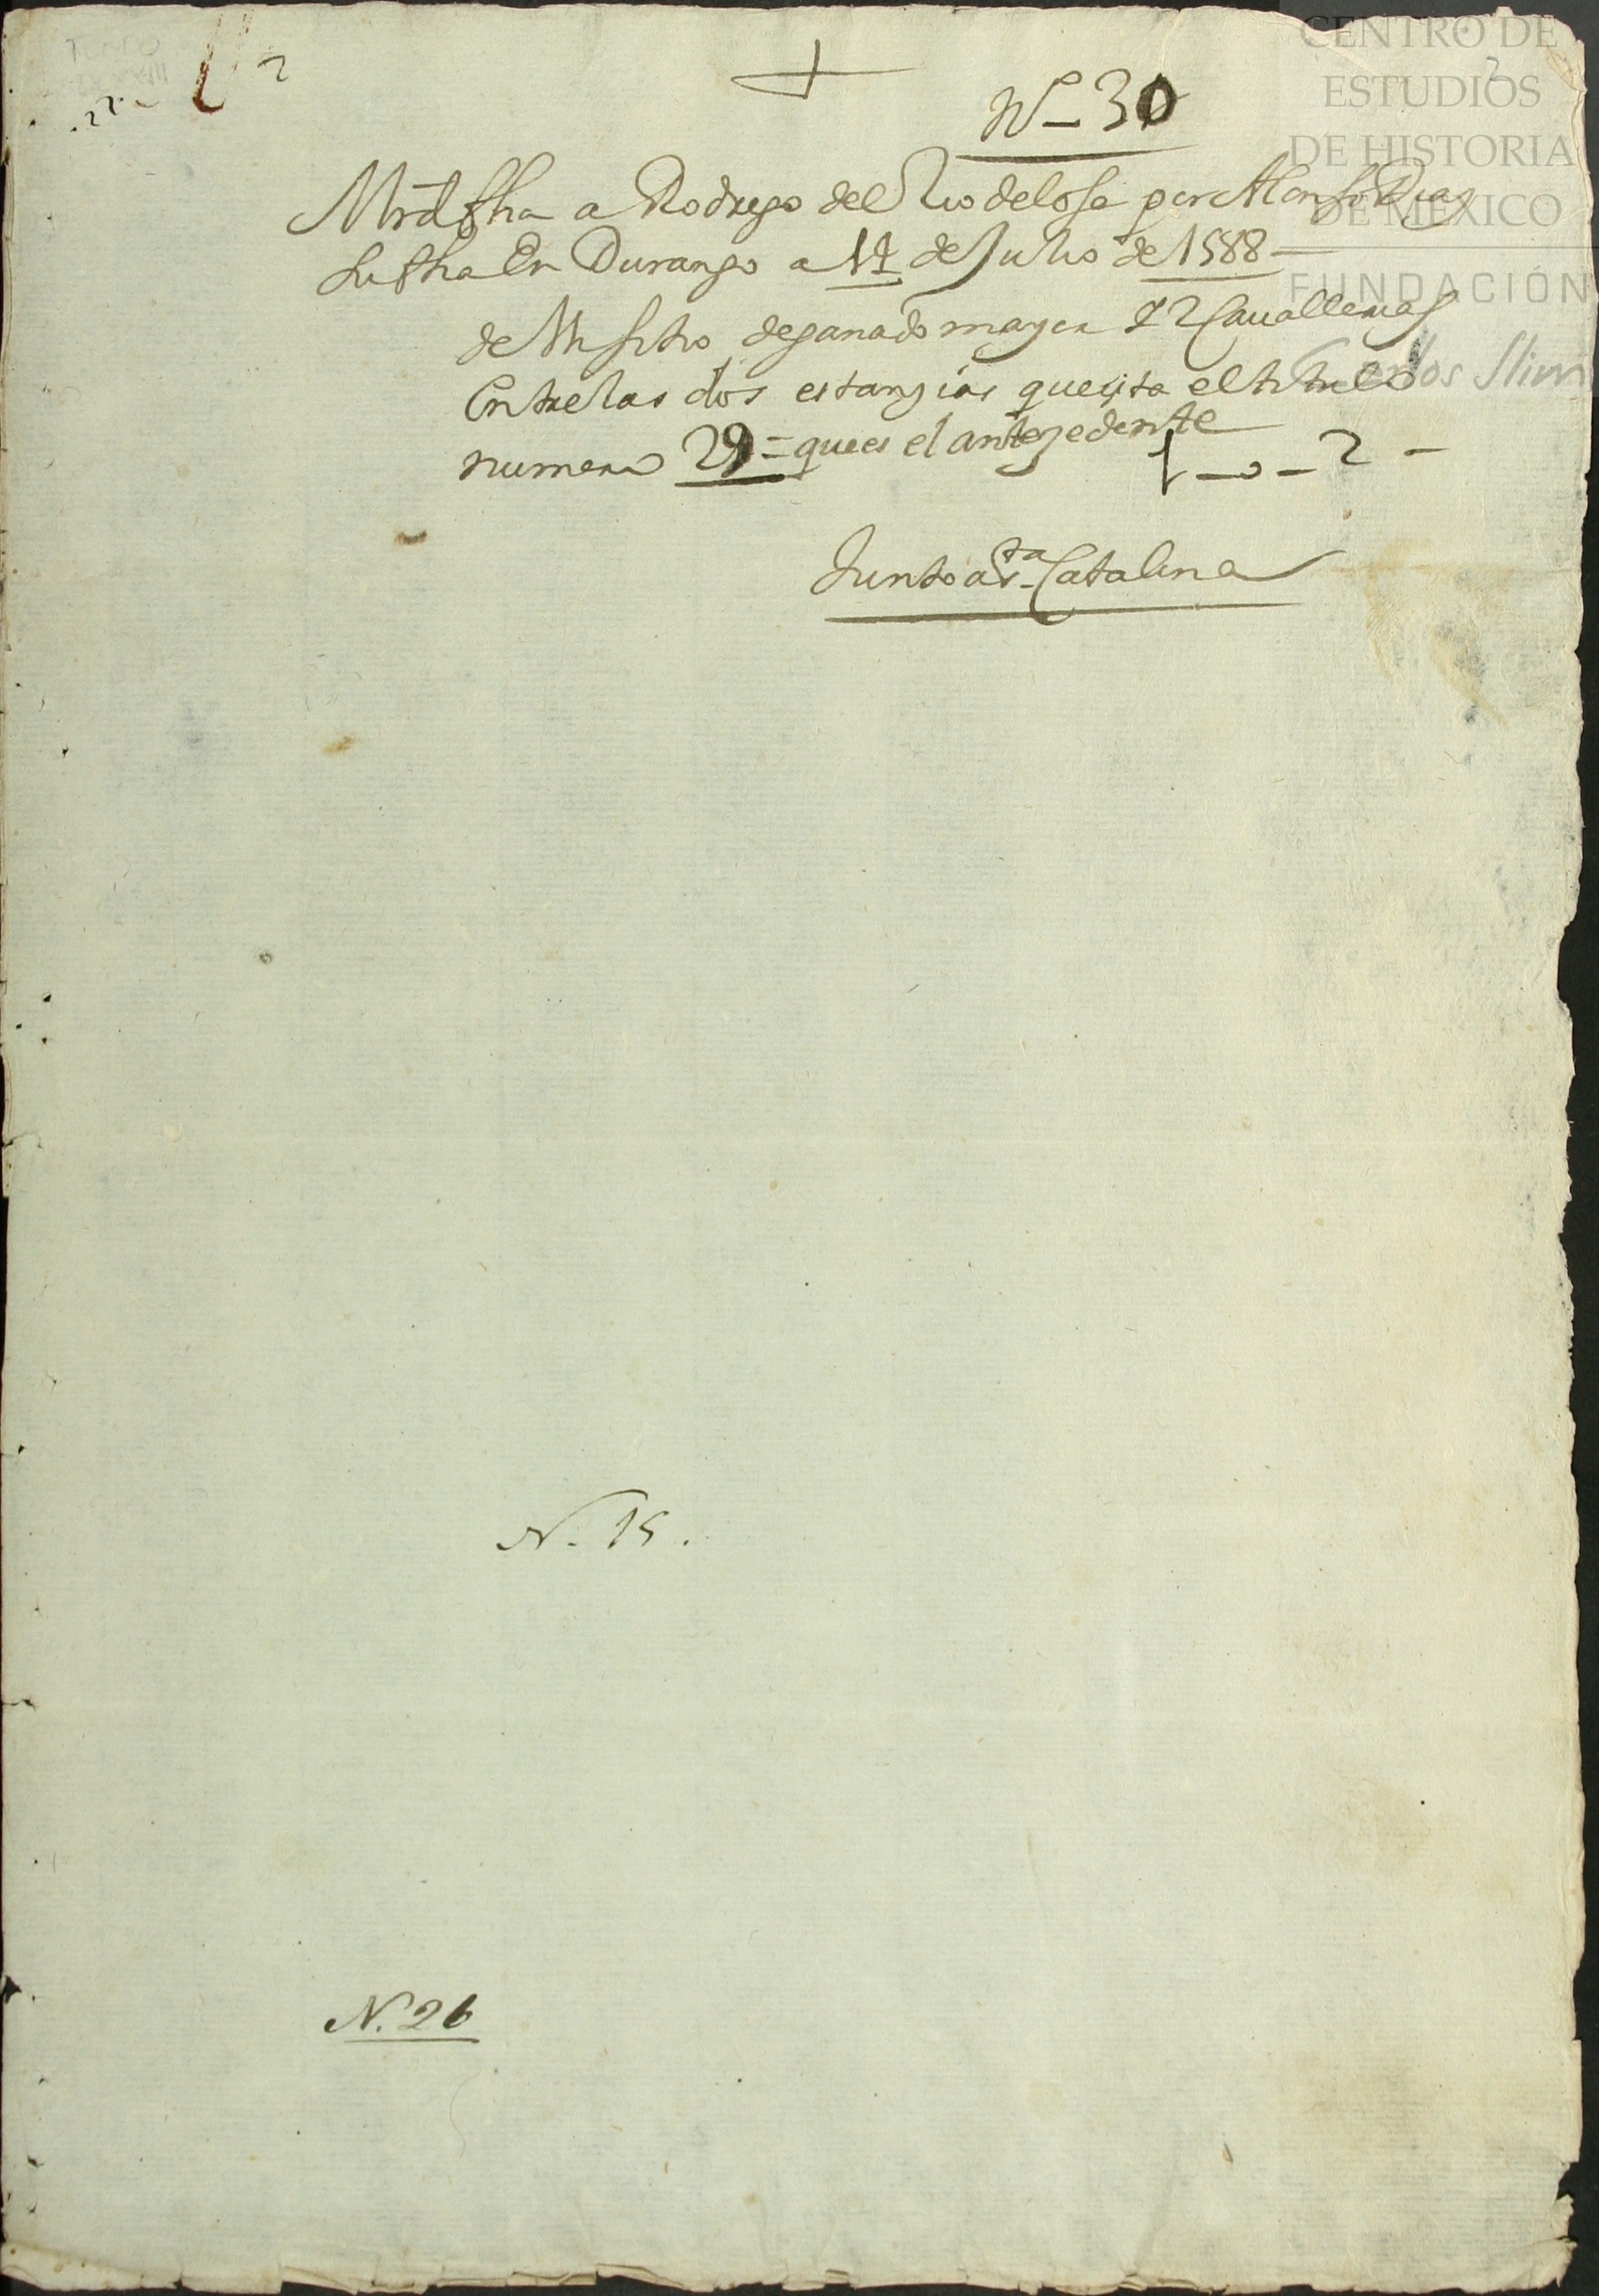 2
Nº 30
Mrd fha a Rodrigo del Rio de losa por Alonso Dias
su fha En Durango a de Julio de 1588
de Un sitio de ganado mayor y 2 Cauallerias
Entre las dos estanzias que sita el titulo
numero 29 = que es el antezedente
1 - o - 2 -
Junto a Sta Catalina
N. 15.
N. 26
CENTRO DE
ESTUDIOS
DE HISTORIA
DE MÉXICO
FUNDACIÓN
Carlos Slim